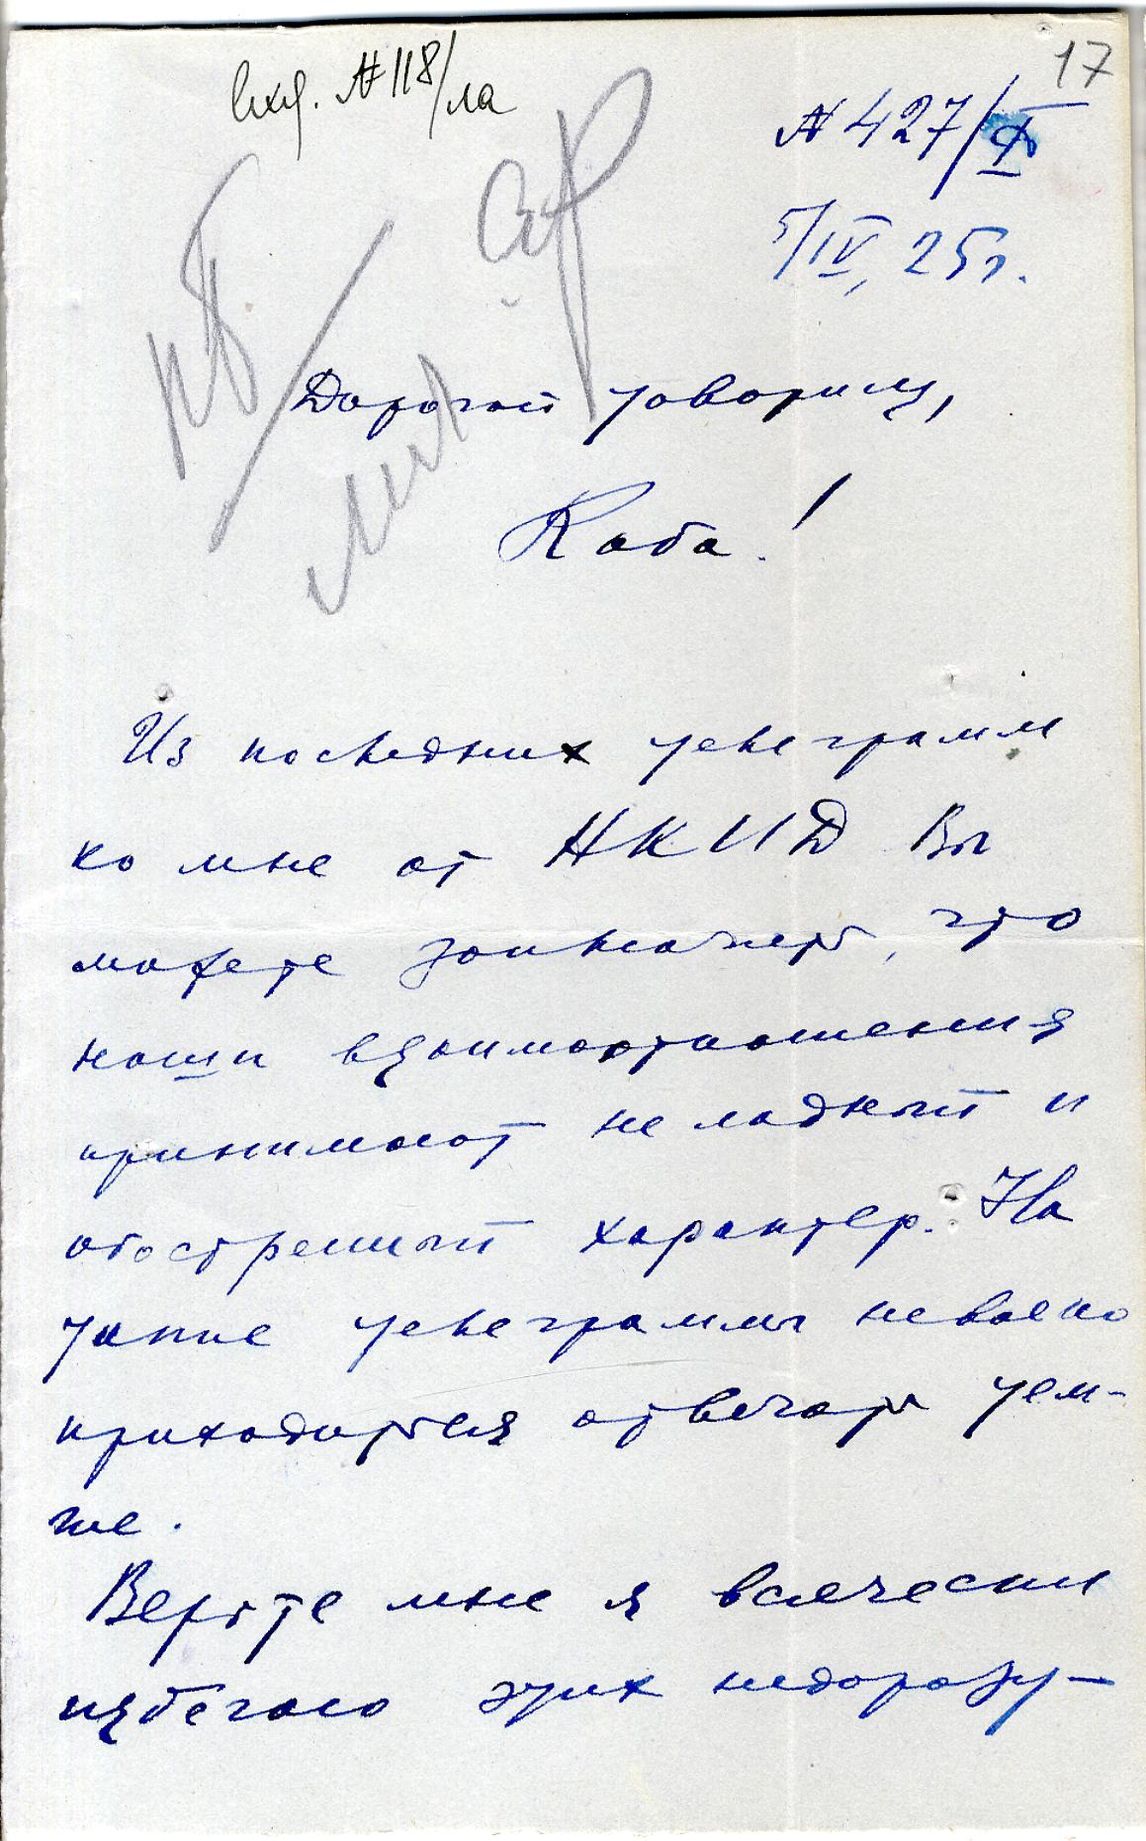 17
вхд. №118/ла
№ 427/I
5/IV, 25г.
Дорогой товарищ,
Коба!
Из последних телеграмм
ко мне от НКИД Вы
можете заключить, что
наши взаимоотношения
принимают неладный и
обостренный характер. На
такие телеграммы невольно
приходиться отвечать тем-
же.
Верьте мне я всячески
избегаю этих недоразу-